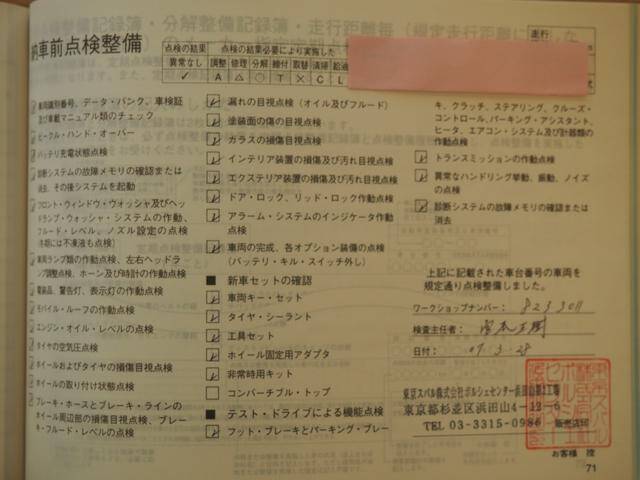 納車前点検整備
走行
点検の結果 点検の結果必要により実施した
異常なし 調整 修理 分解 締付 取替 清掃 給油
✓ A △ ○ T × C L
車両識別番号、データ・バンク、車検証
及び車載マニュアル類のチェック
ビークル・ハンド・オーバー
バッテリ充電状態点検
診断システムの故障メモリの確認または
消去、その後システムを起動
フロント・ウィンドウ・ウォッシャ及びヘッ
ドランプ・ウォッシャ・システムの作動、
フルード・レベル、ノズル設定の点検
(冬期には不凍液も点検)
車両ランプ類の作動点検、左右ヘッドラ
ンプ調整点検、ホーン及び時計の作動点検
電装品、警告灯、表示灯の作動点検
モビル・ルーフの作動点検
エンジン・オイル・レベルの点検
タイヤの空気圧点検
ホイールおよびタイヤの損傷目視点検
ホイールの取り付け状態点検
ブレーキ・ホースとブレーキ・ラインの
ホイール周辺部の損傷目視点検、ブレー
キ・フルード・レベルの点検
漏れの目視点検(オイル及びフルード)
塗装面の傷の目視点検
ガラスの損傷目視点検
インテリア装置の損傷及び汚れ目視点検
エクステリア装置の損傷及び汚れ目視点検
ドア・ロック、リッド・ロック作動点検
アラーム・システムのインジケータ作動
点検
車両の完成、各オプション装備の点検
(バッテリ・キル・スイッチ外し)
■ 新車セットの確認
車両キー・セット
タイヤ・シーラント
工具セット
ホイール固定用アダプタ
非常時用キット
コンバーチブル・トップ
■ テスト・ドライブによる機能点検
フット・ブレーキとパーキング・ブレー
キ、クラッチ、ステアリング、クルーズ・
コントロール、パーキング・アシスタント、
ヒータ、エアコン・システム及び計器類の
作動点検
トランスミッションの作動点検
異常なハンドリング挙動、振動、ノイズ
の点検
診断システムの故障メモリの確認または
消去
上記に記載された車台番号の車両を
規定通り点検整備しました。
ワークショップナンバー: 8233011
検査主任者:
日付: 07.3.28
東京スバル株式会社ポルシェセンター浜田山第2工場
東京都杉並区浜田山4-12-6 販売店印
TEL 03-3315-0986
お客様 控
71